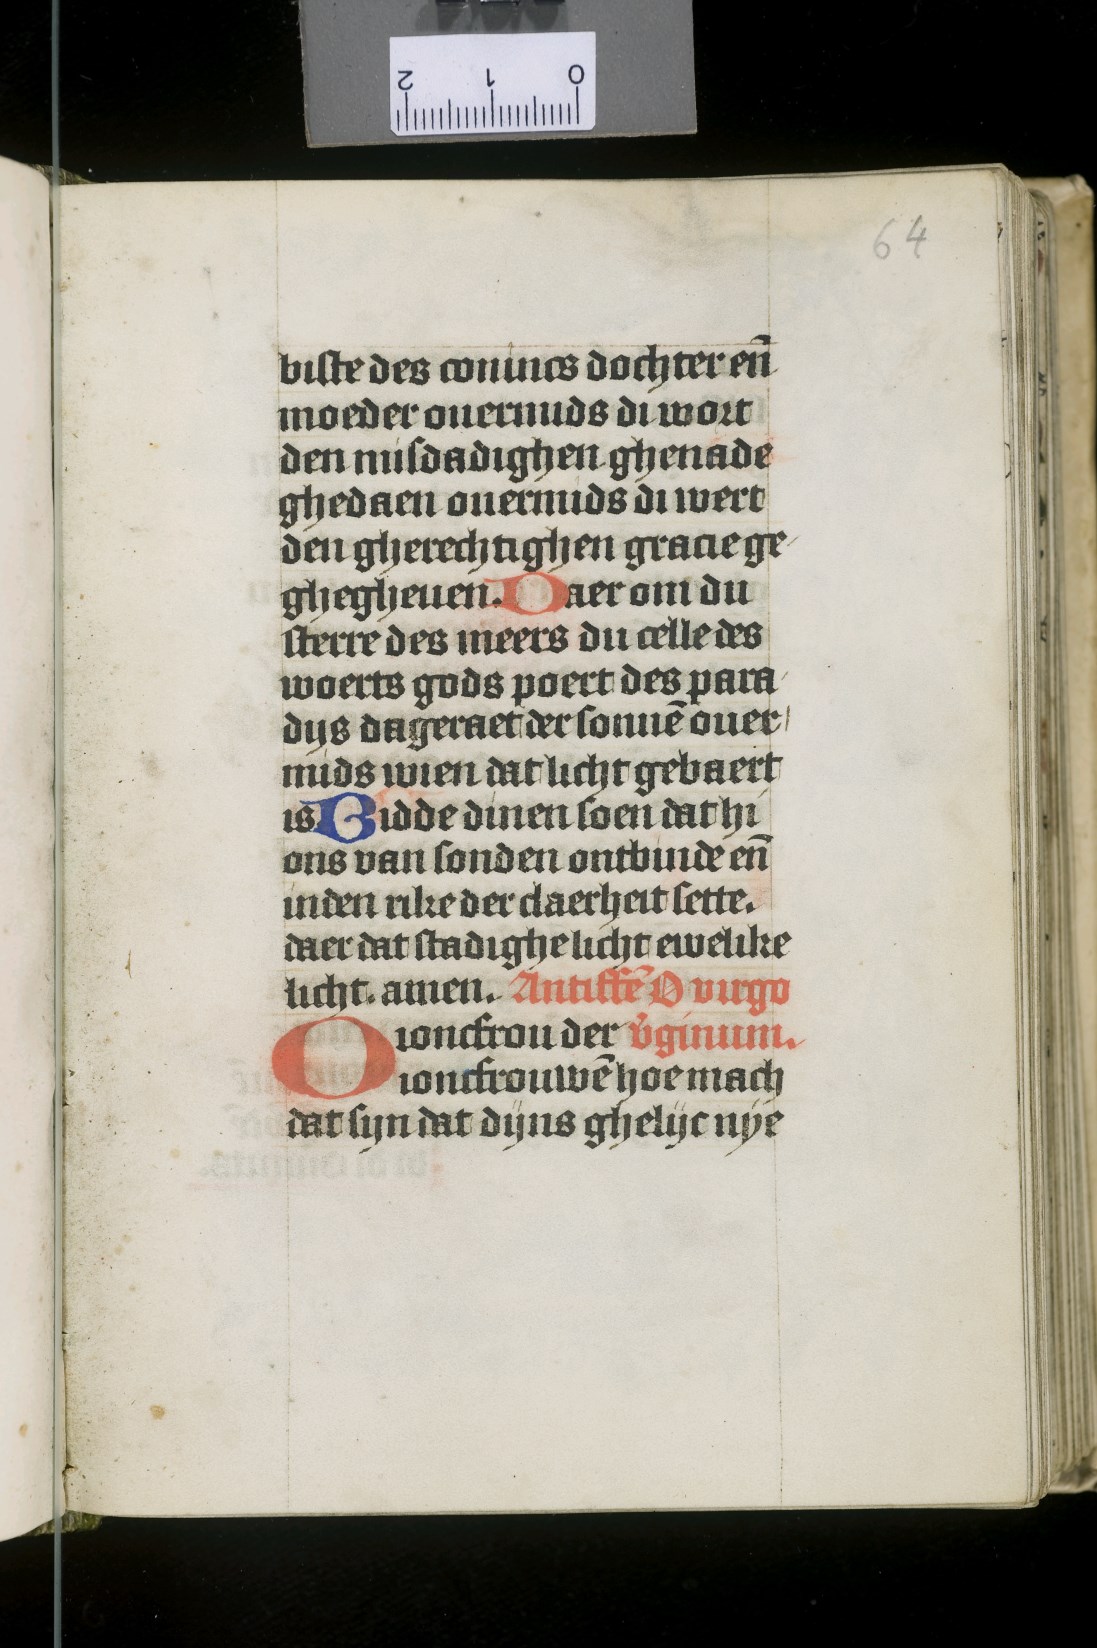 2 1 0
64
biste des conincs dochter en̄
moeder ouermids di wort
den misdadighen ghenade
ghedaen ouermids di wert
den gherechtighen gracie ge-
ghegheuen. Daer om du
sterre des meers du celle des
woerts gods poert des para-
dijs dageraet der sonnē ouer/
mids wien dat licht gebaert
is. Bidde dinen soen dat hi
ons van sonden ontbinde en̄
inden rike der claerheit sette.
daer dat stadighe licht ewelike
licht. amen. Antiffē O virgo
O ioncfrou der v̄ginum.
ioncfrouwē hoe mach
dat sijn dat dijns ghelijc nye